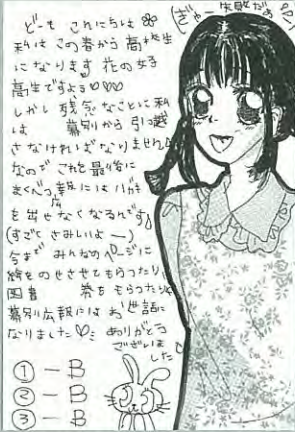 ぎゃー失敗だぁ
どーも これにちは
私は この春から 高校生
になります 花の女子
高生ですよぅ♡♡♡
しかし 残念なことに 私
は 幕別から 引っ越
さなければなりません
なので これを 最後に
まくべつ広報には ハガキ
を出せなくなるんです
(すごく さみしいよー)
今まで みんなのページに
絵をのせさせてもらったり
図書 券をもらったり
幕別広報には お世話に
なりました♡ ありがとう
ございま
した
①-B
②-B
③-B